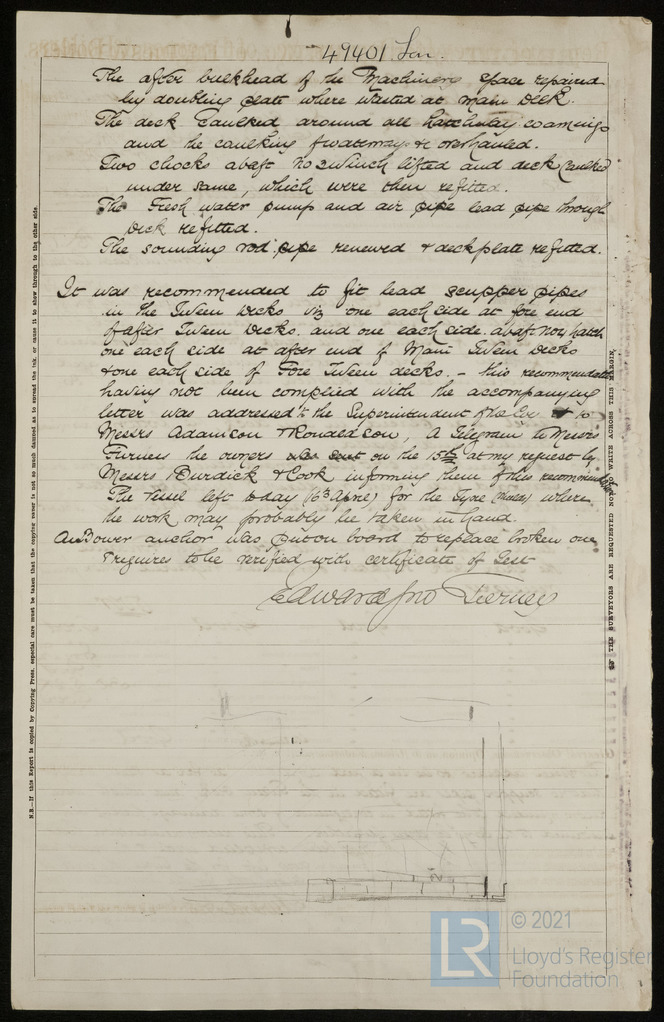 49401 Lon.
The after bulkhead of the Machinery space repaired
by doubling plate where wasted at main Deck.
The deck Caulked around all hatchway coamings
and the caulking of waterways &c overhauled.
Two chocks abaft No 2 Winch lifted and deck Caulked
under same, which were then refitted.
The Fresh water pump and air pipe lead pipe through
Deck refitted.
The sounding rod pipe renewed & deck plate refitted.
It was recommended to fit lead scupper pipes
in the Tween Decks viz one each side at fore end
of after Tween Decks and one each side abaft hatch
one each side at after end of Main Tween Decks
& one each side of Fore Tween decks. - this recommendation
having not been complied with the accompanying
letter was addressed to the Superintendent of the & to
Messrs Adamson & Ronaldson, A Telegram to Messrs
Furness the owners was sent on the 15th at my request by
Messrs Burdick & Cook informing them of this recommendation
The Vessel left today (16th April) for the Tyne where
the work may probably be taken in hand.
A Bower anchor was put on board to replace broken one
& requires to be verified with certificate of Test
Edward Jno Tierney
N.B.—If this Report is copied by Copying Press, especial care must be taken that the copying water is not so much damped as to spread the ink, or cause it to show through to the other side.
THE SURVEYORS ARE REQUESTED NOT TO WRITE ACROSS THIS MARGIN.
LR
© 2021
Lloyd's Register
Foundation